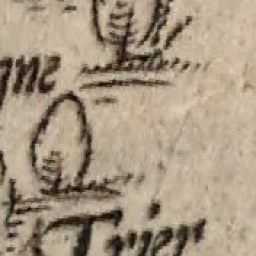 gne
Trier